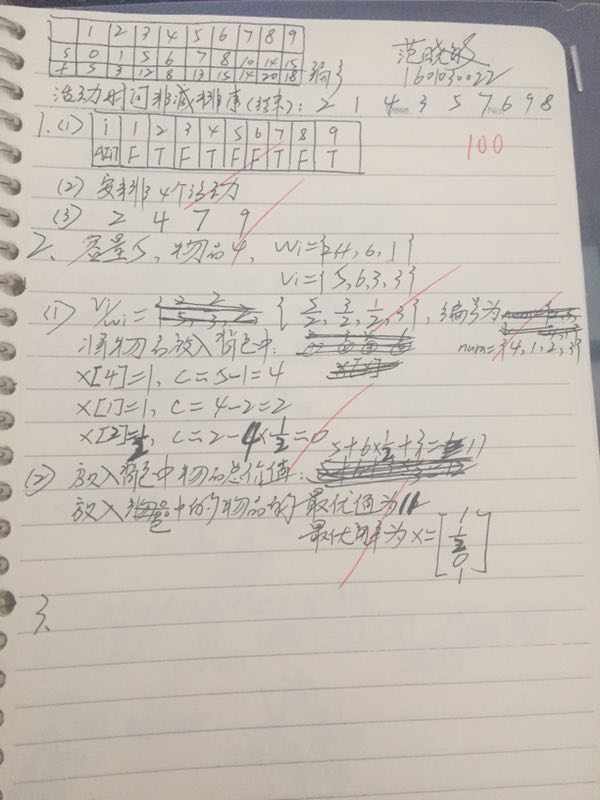 1 2 3 4 5 6 7 8 9
s 0 1 5 6 7 8 10 14 15
f 5 3 12 8 13 15 14 20 18 编号
160103022
活动时间非减排序(结束): 2 1 4 3 5 7 6 9 8
100
1. (1) i 1 2 3 4 5 6 7 8 9
A[i] F T F T F F T F T
(2) 安排了4个活动
(3) 2 4 7 9
2. 容量5, 物品4, Wi={2,4,6,1}
Vi={5,6,3,3}
(1) Vi/wi= {5/2, 3/2, 1/2, 3}, 编号为
将物品放入背包中: num={4,1,2,3}
X[4]=1, C=5-1=4
X[1]=1, C=4-2=2
X[2]=1/2, C=2-4×1/2=0
(2) 放入背包中物品总价值: 5+6×1/2+3=11
放入容量中的物品的最优值为11
最优解为X=[1 1/2 0 1]
3.